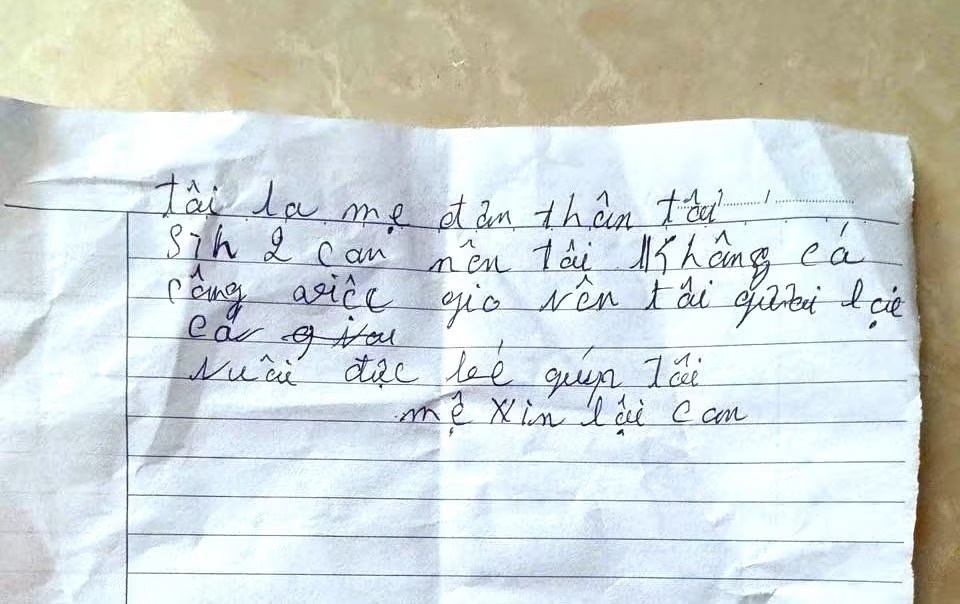 tôi la mẹ đơn thân tôi
Sih 2 con nên tôi không có
công việc gio nên tôi gửi lại
nuôi đực bé giúp tôi
mẹ xin lội con